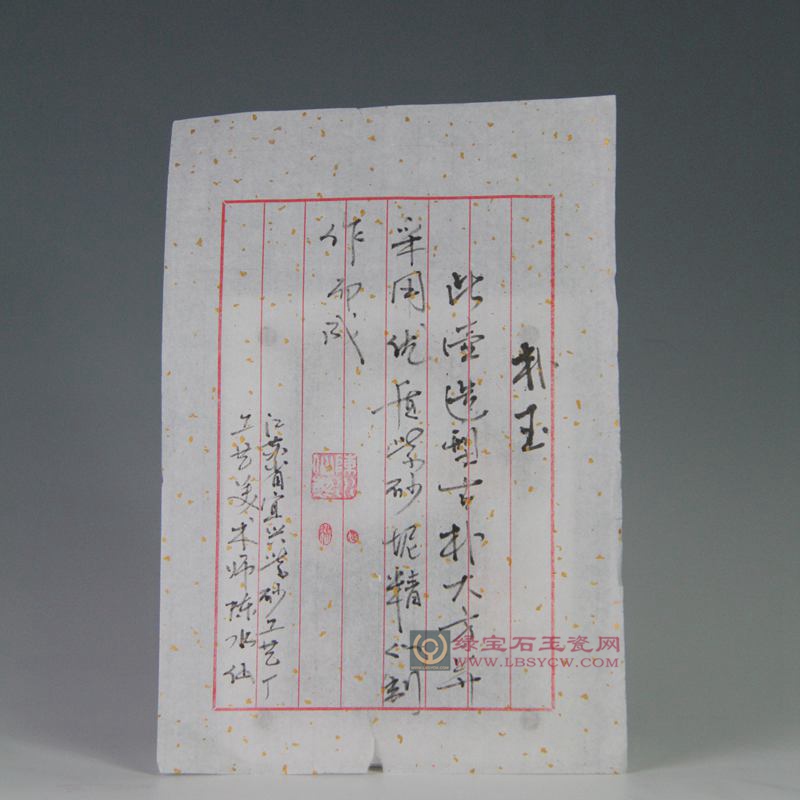 朴玉
此壶造型古朴大方并
采用优质紫砂坭精心制
作而成
江苏省宜兴紫砂工艺厂
工艺美术师陈水仙
绿宝石玉瓷网
WWW.LBSYCW.COM